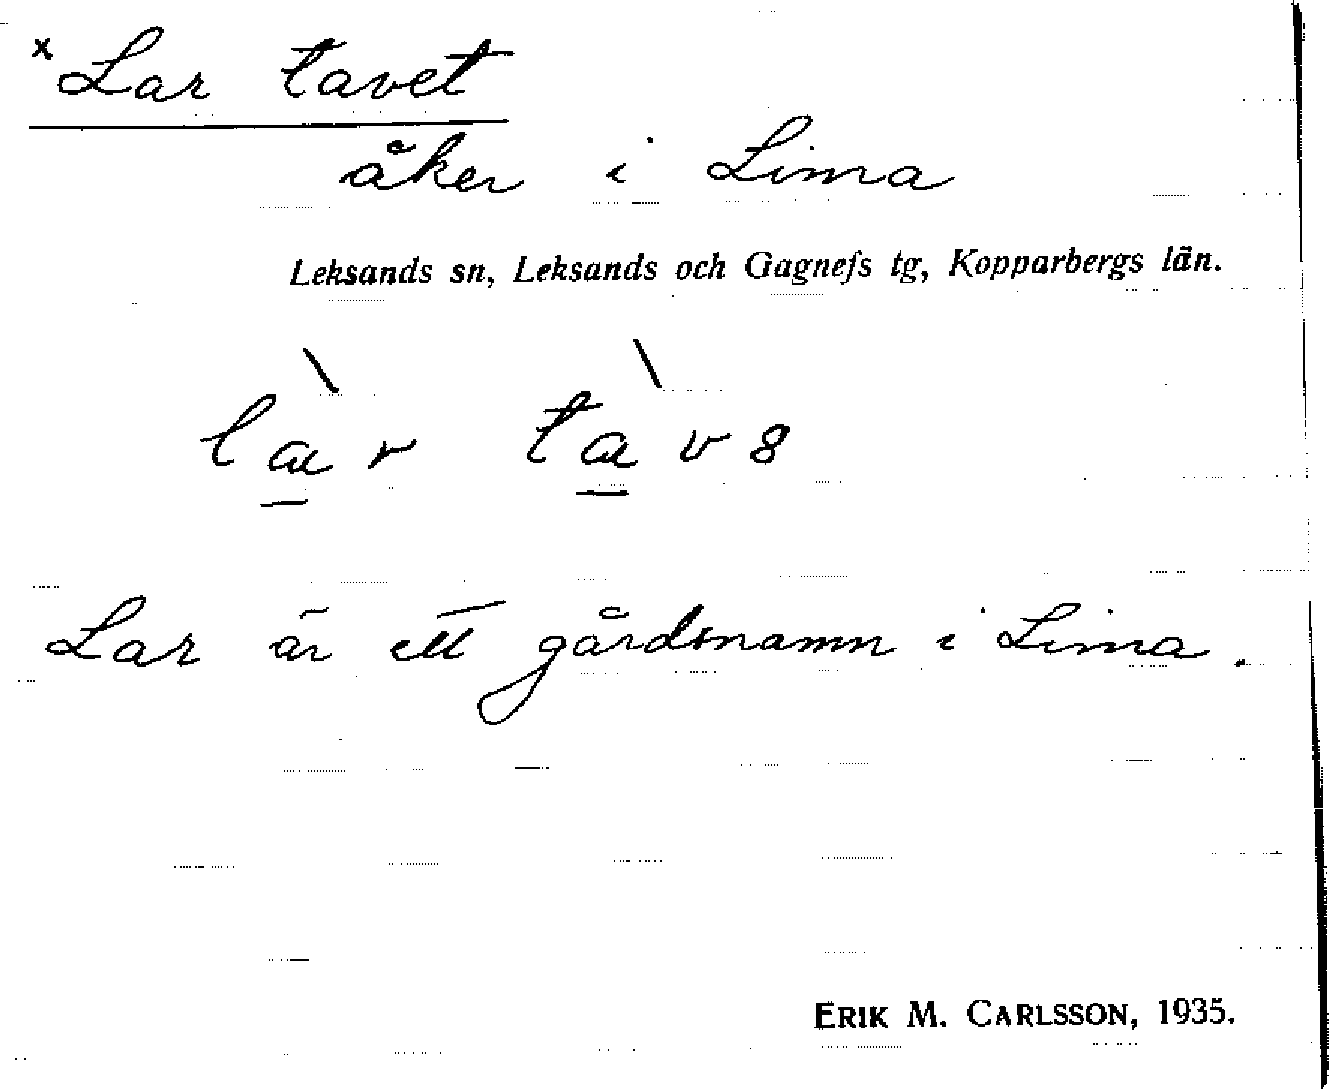 x Lar tavet
åker i Lima
Leksands sn, Leksands och Gagnefs tg, Kopparbergs län.
la̱r ta̱v8
Lar är ett gårdsnamn i Lima.
ERIK M. CARLSSON, 1935.